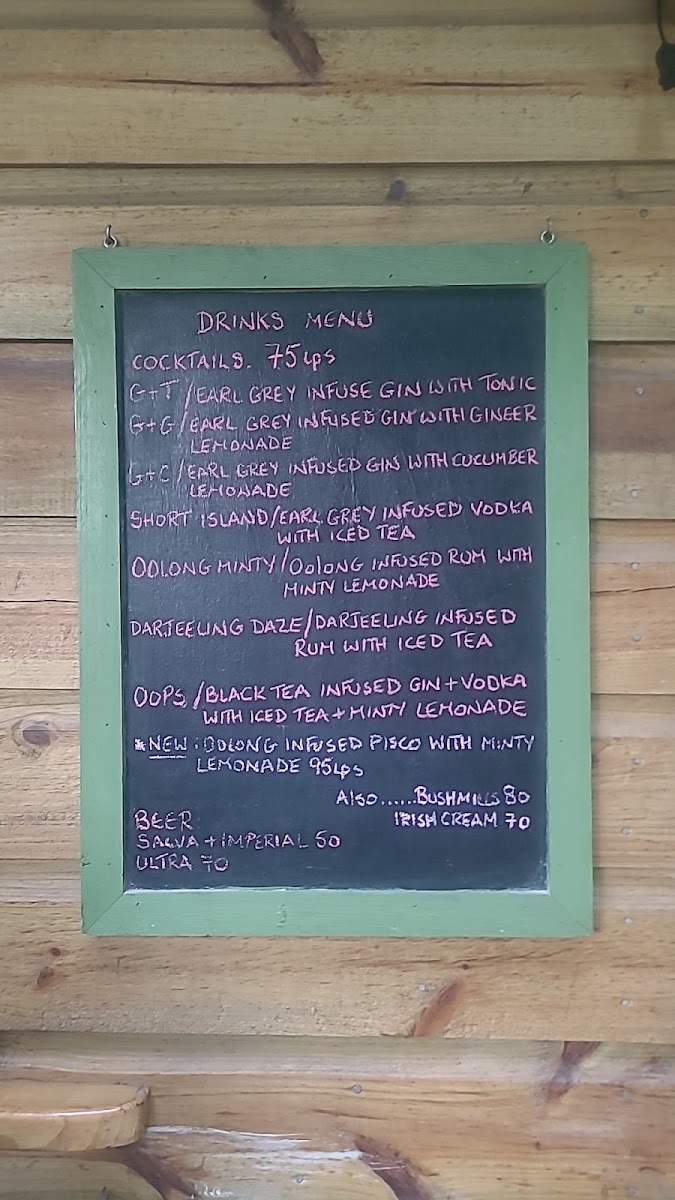 DRINKS MENU
COCKTAILS. 75 Lps
G+T / EARL GREY INFUSE GIN WITH TONIC
G+G / EARL GREY INFUSED GIN WITH GINGER
LEMONADE
G+C / EARL GREY INFUSED GIN WITH CUCUMBER
LEMONADE
SHORT ISLAND / EARL GREY INFUSED VODKA
WITH ICED TEA
OOLONG MINTY / OOLONG INFUSED RUM WITH
MINTY LEMONADE
DARJEELING DAZE / DARJEELING INFUSED
RUM WITH ICED TEA
OOPS / BLACK TEA INFUSED GIN + VODKA
WITH ICED TEA + MINTY LEMONADE
* NEW : OOLONG INFUSED PISCO WITH MINTY
LEMONADE 95 Lps
Also......BUSHMILLS 80
IRISH CREAM 70
BEER
SALVA + IMPERIAL 50
ULTRA 70